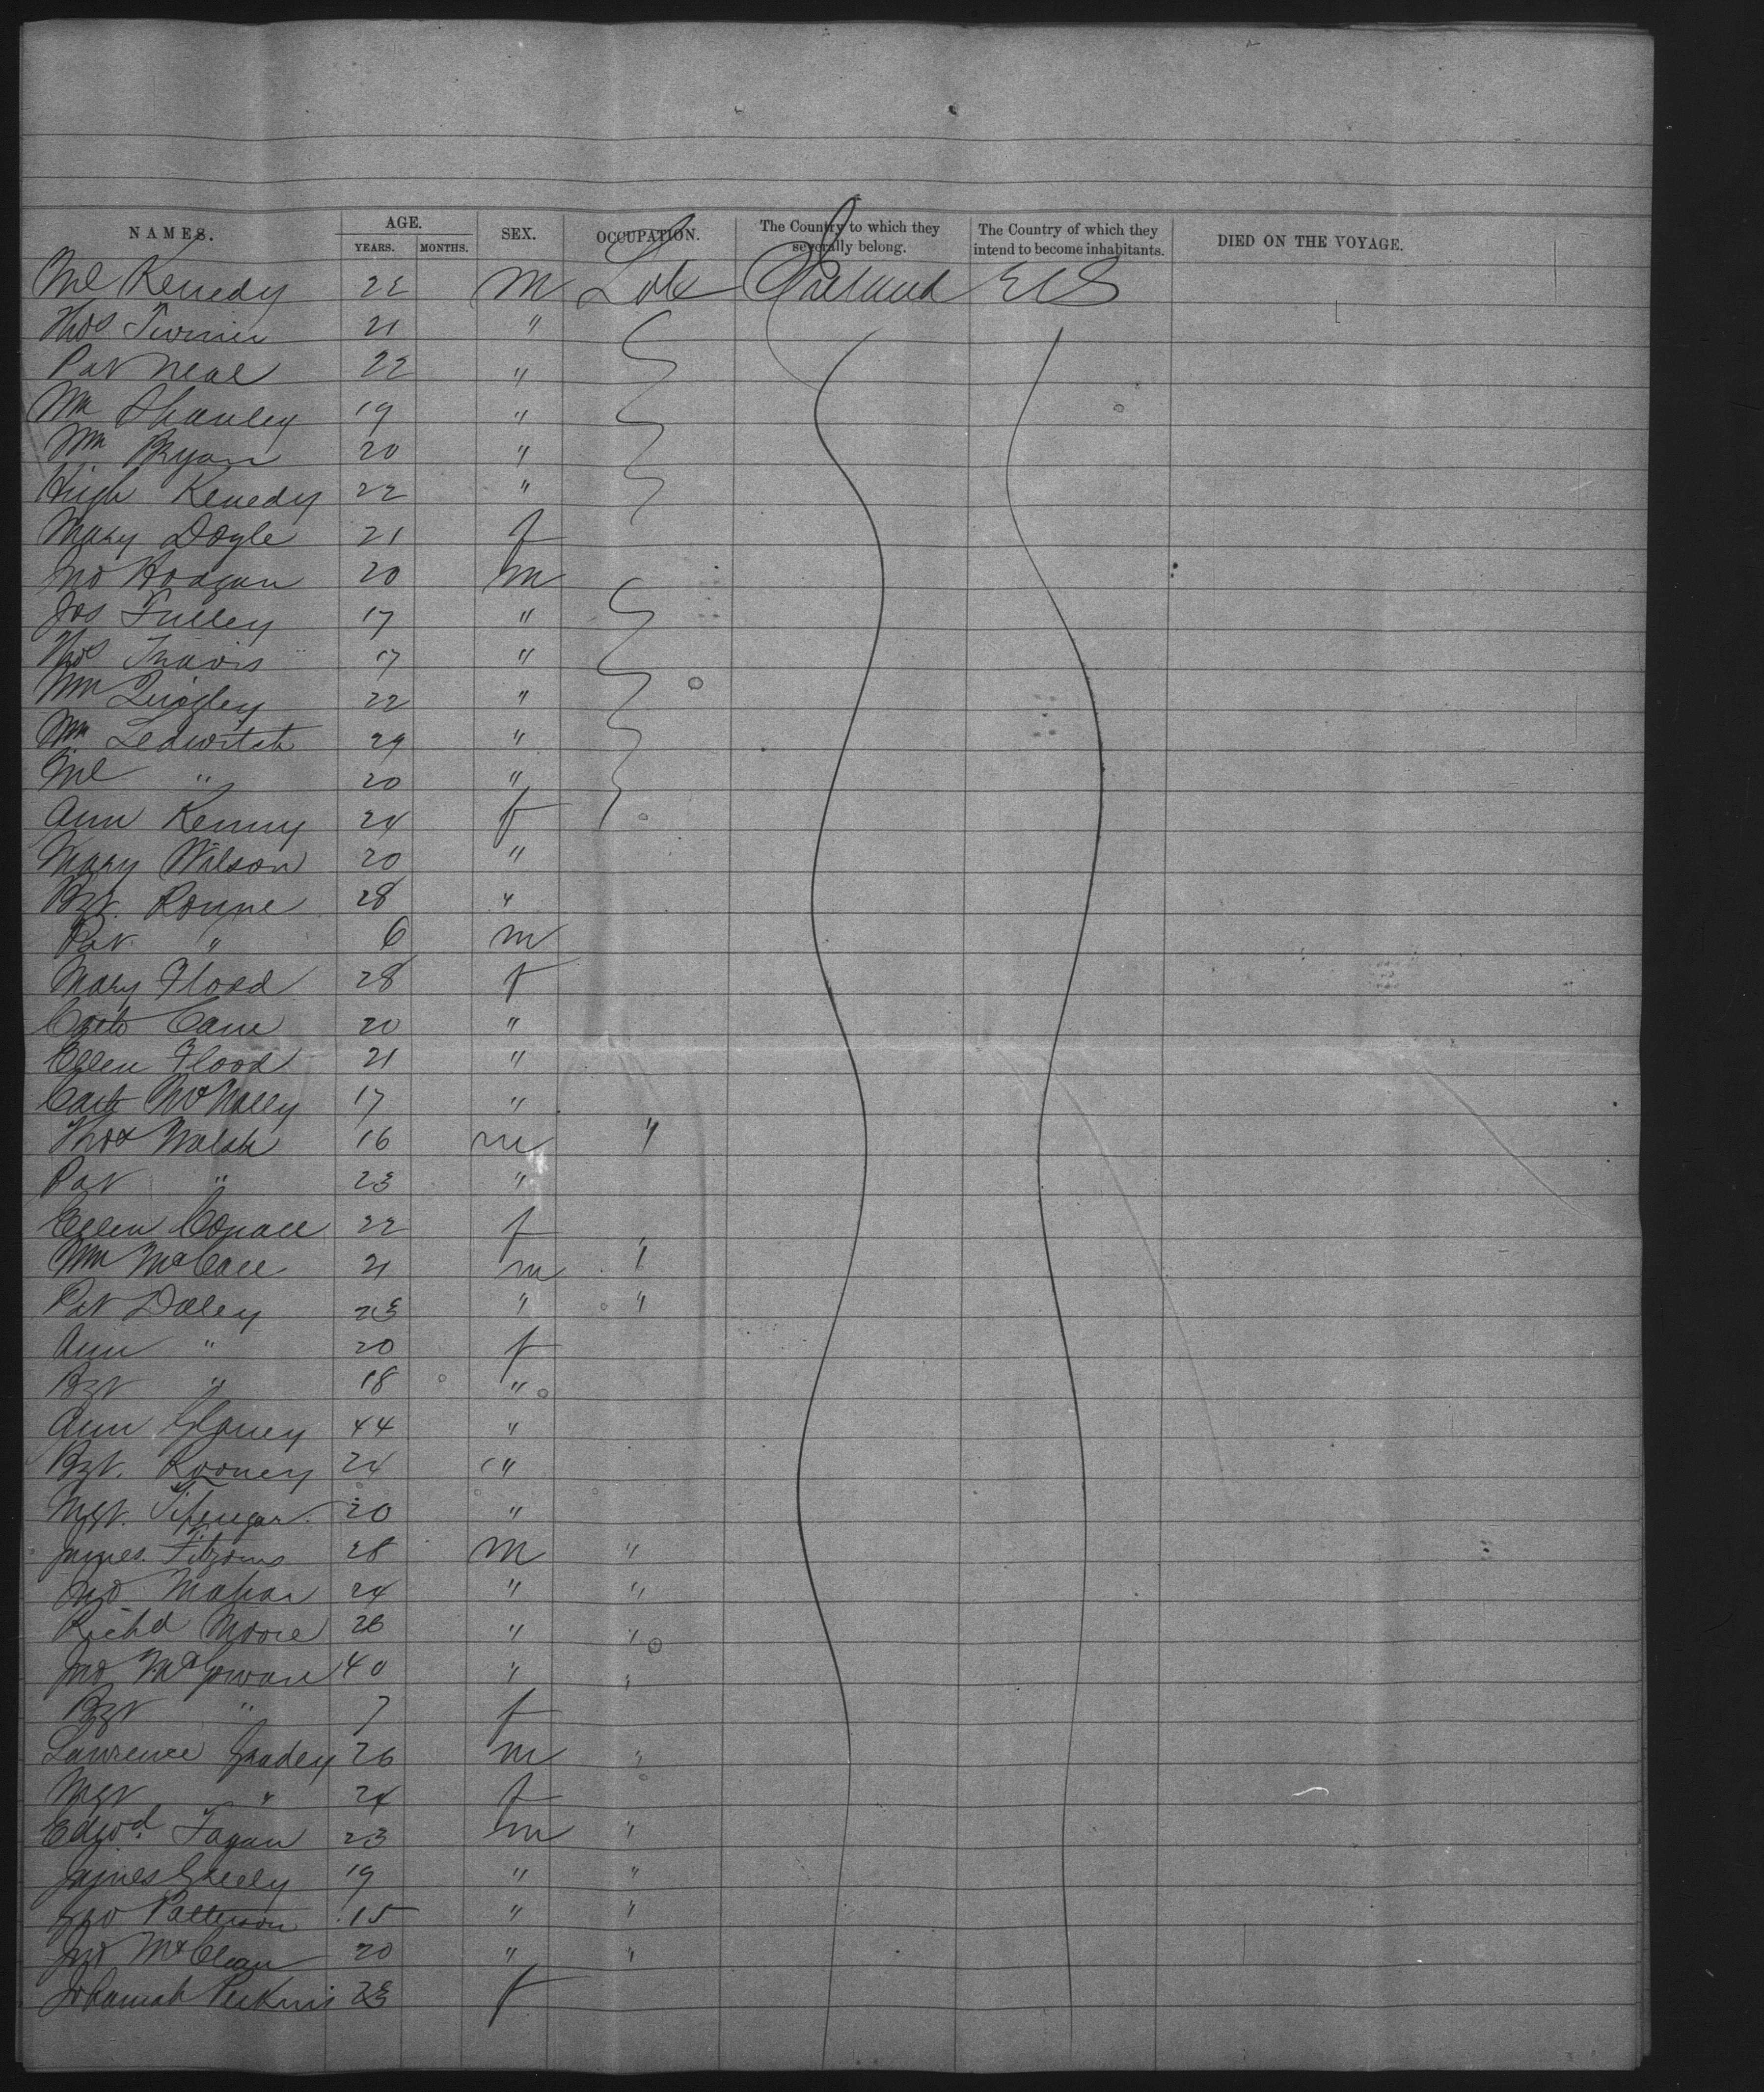 NAMES. AGE. YEARS. MONTHS. SEX. OCCUPATION. The Country to which they severally belong. The Country of which they intend to become inhabitants. DIED ON THE VOYAGE.
Ml Kenedy 22 M Lab Ireland US
Thos Turner 21 "
Pat Neal 22 "
Wm Shanley 19 "
Wm Ryan 20 "
Hugh Kenedy 22 "
Mary Doyle 21 f
Jno Hodgan 20 m
Jos Tulley 17 "
Thos Travis 17 "
Wm Quigley 22 "
Wm Ledwitch 29 "
Ml " 20 "
Ann Kenny 24 f
Mary Wilson 20 "
Bgt. Roune 28 "
Pat " 6 m
Mary Flood 28 f
Cath Cane 20 "
Ellen Flood 21 "
Cath McNally 17 "
Thos Walsh 16 m "
Pat " 23 "
Ellen Conall 22 f
Wm McCall 21 m "
Pat Daley 23 " "
Ann " 20 f
Bgt " 18 "
Ann Glaney 44 "
Bgt. Rooney 24 "
Mgt. 20 "
James Fitzsoms 28 M "
Jno Mahan 24 " "
Richd Moore 26 " "
Jno McGowan 40 " "
Bgt " 7 f
Lawrence Gradey 26 m "
Mgt " 24 f
Edwd. Fagan 23 m "
James Greely 19 " "
Geo Patterson 15 " "
Jno McClean 20 " "
Johannah Perkins 23 f